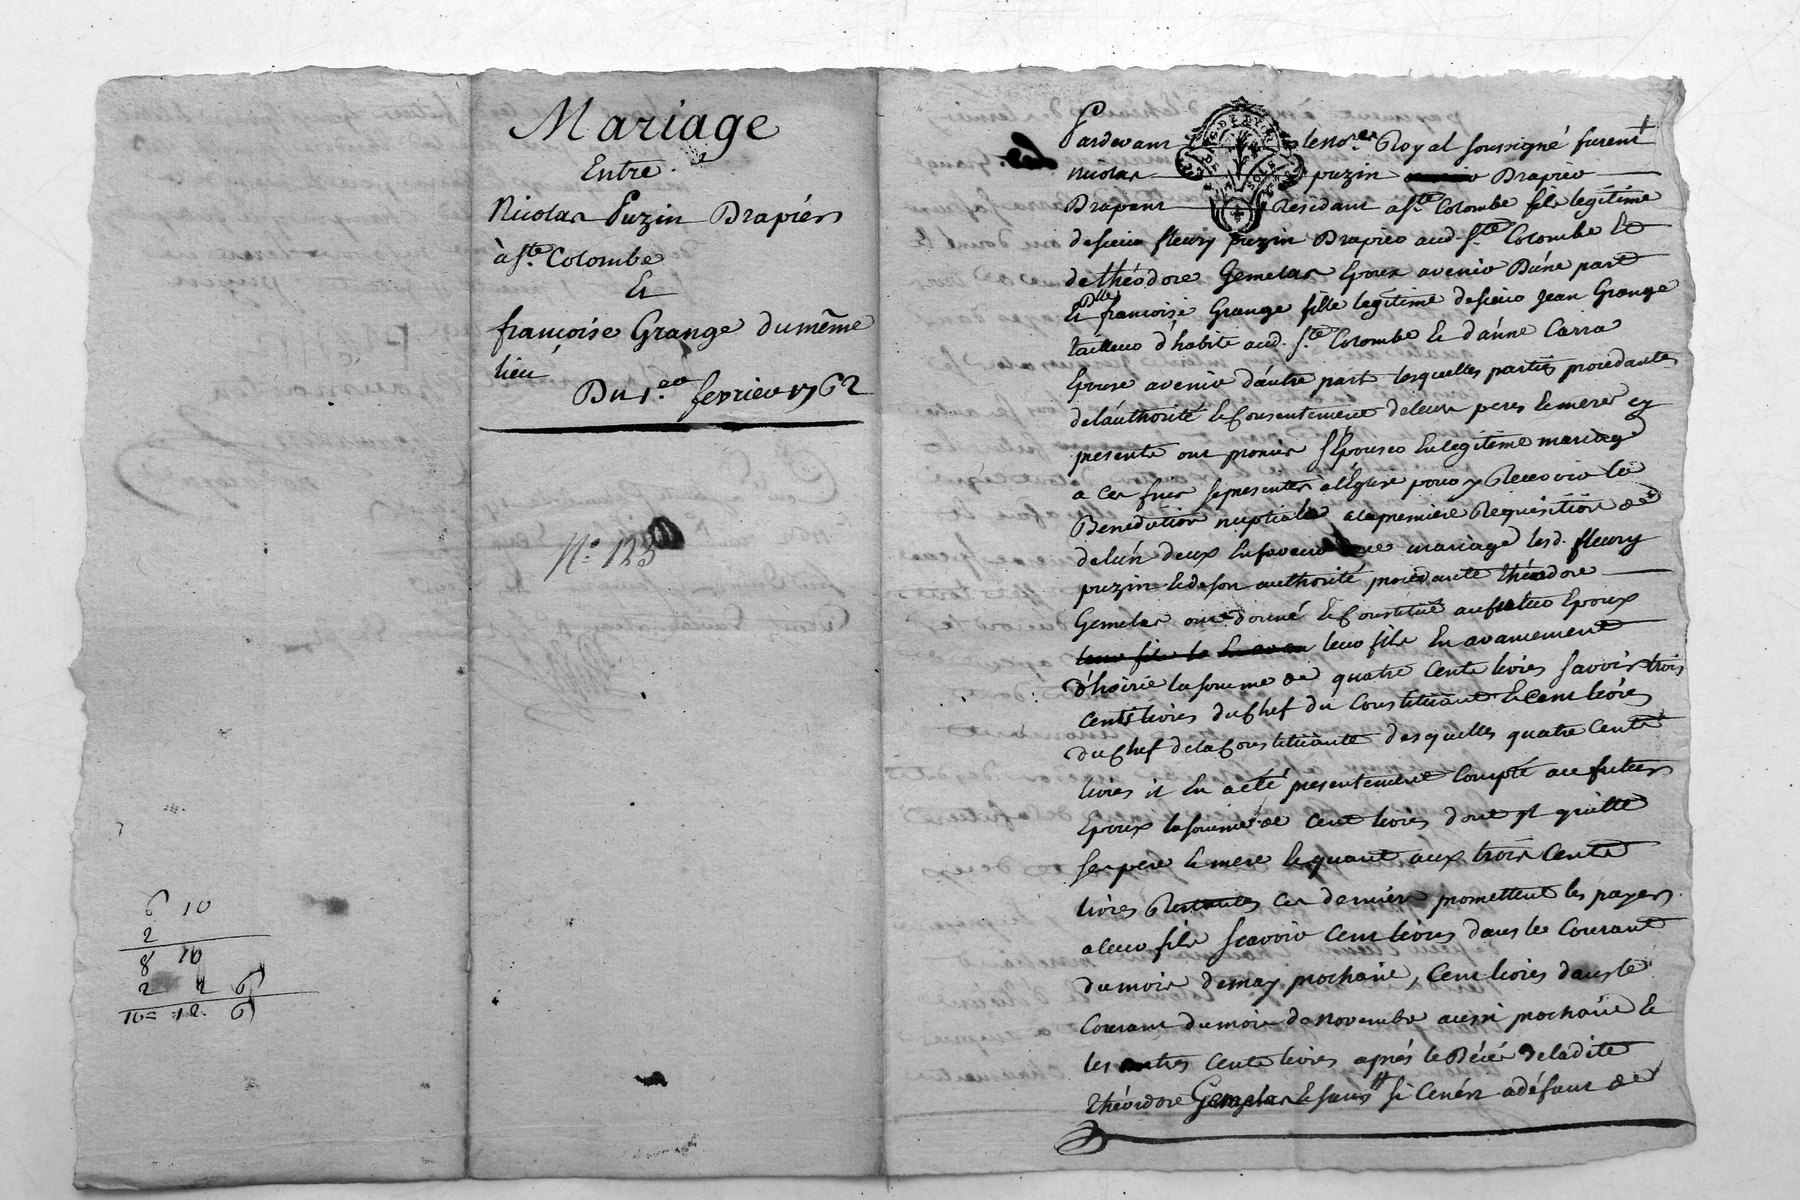 Mariage
Entre
Nicolas Puzin Drapier
à Ste Colombe
Et
françoise Grange du même
lieu
Du 1.er fevrier 1762
N.o 123
6 10
2
8 10
2 2 6
10= 12. 6
Pardevant le no.re Royal soussigné furent
nicolas puzin Drapier
Drapant Residant a Ste Colombe fils legitime
de sieur fleury puzin Drapier aud. Ste Colombe Et
de théodore Gemelas Epoux avenir D'une part
Et Dlle francoise Grange fille legitime de sieur Jean Grange
tailleur d'habits aud. Ste Colombe Et d'anne Carra
Epouse avenir d'autre part lesquelles parties procedantes
de l'authorité et Consentement de leurs peres et meres cy
presents ont promis s'Epouser En legitime mariage
a ces fins se presenter a l'Eglise pour y Recevoir la
Benediction nuptiale a la premiere Requisition de
de l'un deux En faveur mariage lesd. fleury
puzin et de son authorité procedante théodore
Gemelas ont donné et Constitué au futur Epoux
leur fils En avancement
d'hoirie la somme de quatre Cents livres savoir trois
cents livres du Chef du Constituant et cent livres
du Chef de la Constituante desquelles quatre Cents
livres il En a eté presentement Compté au futur
Epoux la somme de Cent livres dont il quitte
ses pere et mere et quant aux trois Cents
livres Restantes ces derniers promettent les payer
a leur fils scavoir Cent livres dans le Courant
du mois de may prochain, Cent livres dans le
Courant du mois de Novembre aussi prochain et
les autres Cents livres aprés le Décés de ladite
théodore Gemelas si ce n'est a défaut de